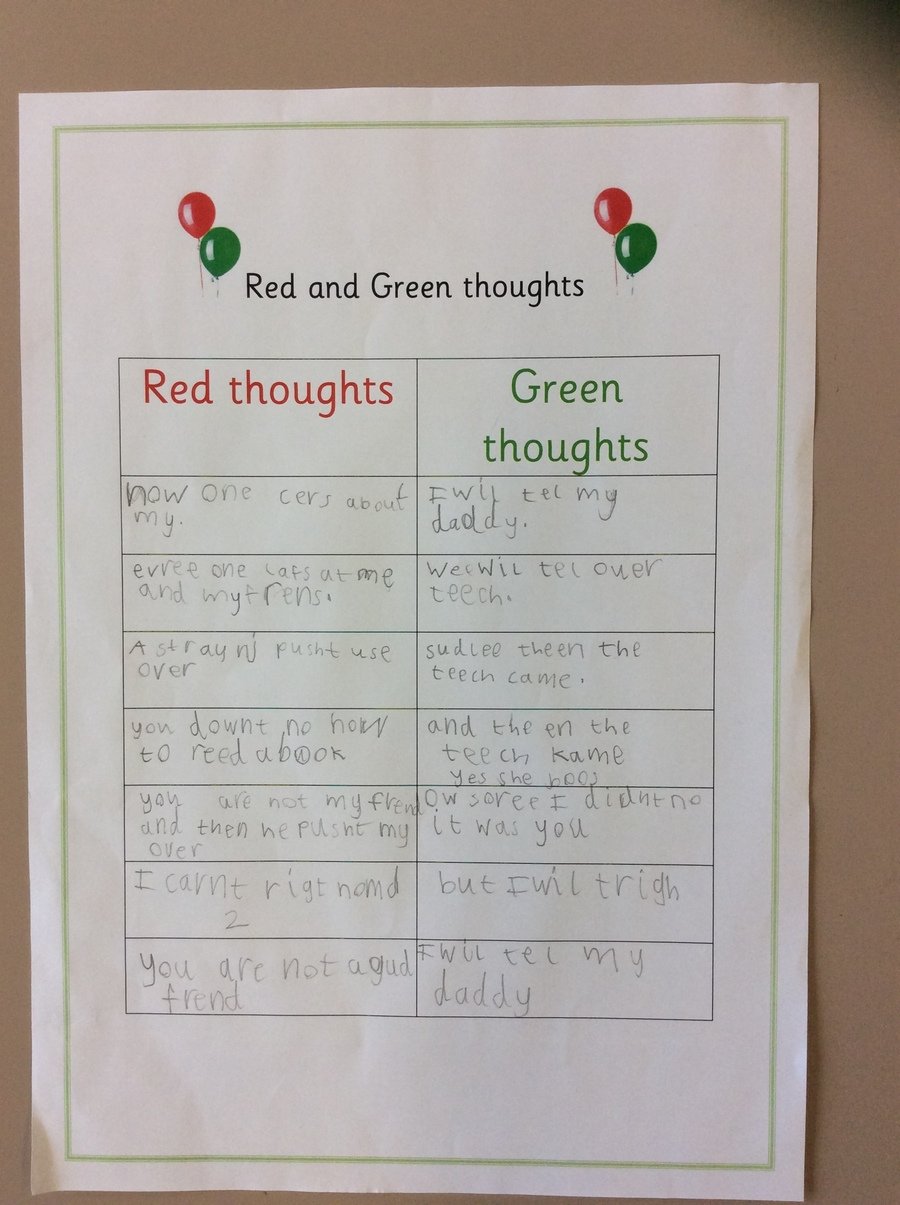 Red and Green thoughts
Red thoughts
Green
thoughts
now one cers about
my.
I wil tel my
daddy.
evree one lafs at me
and my frens.
wee wil tel ouer
teech.
A straynj pusht use
over
sudlee theen the
teech came.
you downt no how
to reed a book
and the en the
teech kame
yes she
you are not my frend
and then he pusht my
over
Ow soree I didnt no
it was you
I carnt rigt nomd
2
but I wil trigh
you are not a gud
frend
I wil tel my
daddy